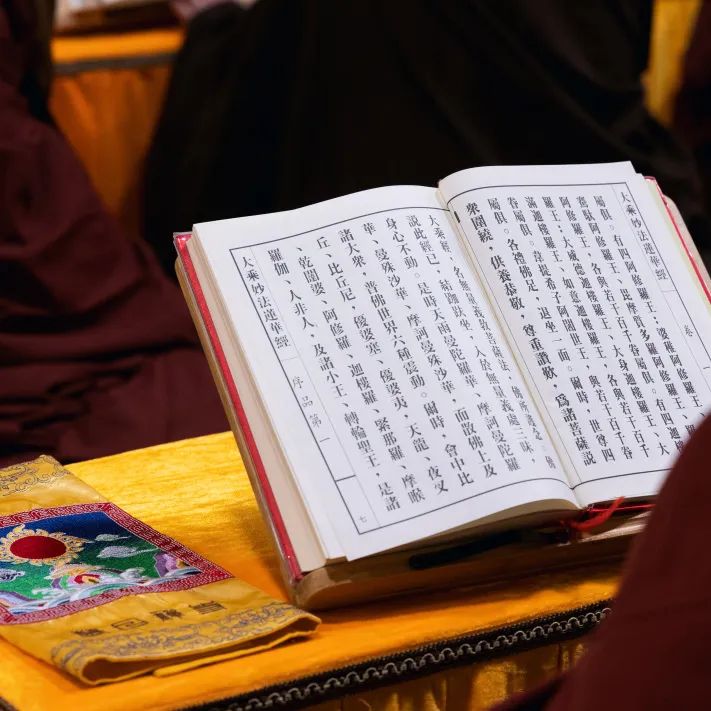 大乘妙法蓮華經 卷一
屬俱。有四阿修羅王、婆稚阿修羅王、
騫馱阿修羅王、毗摩質多羅阿修羅王、
阿修羅王、各與若干百千眷屬俱。有四迦樓
羅王、大威德迦樓羅王、大身迦樓羅王、大
滿迦樓羅王、如意迦樓羅王、各與若干百千
眷屬俱。韋提希子阿闍世王、與若干百千眷
屬俱。各禮佛足，退坐一面。爾時，世尊四
眾圍繞，供養恭敬，尊重讚歎，為諸菩薩說
大乘經，名無量義教菩薩法，佛所護念。佛
說此經已，結跏趺坐，入於無量義處三昧，
身心不動。是時天雨曼陀羅華、摩訶曼陀羅
華、曼殊沙華、摩訶曼殊沙華，而散佛上及
諸大眾，普佛世界六種震動。爾時，會中比
丘、比丘尼、優婆塞、優婆夷，天龍、夜叉
、乾闥婆、阿修羅、迦樓羅、緊那羅、摩睺
羅伽、人非人，及諸小王、轉輪聖王，是諸
大乘妙法蓮華經 序品第一 七